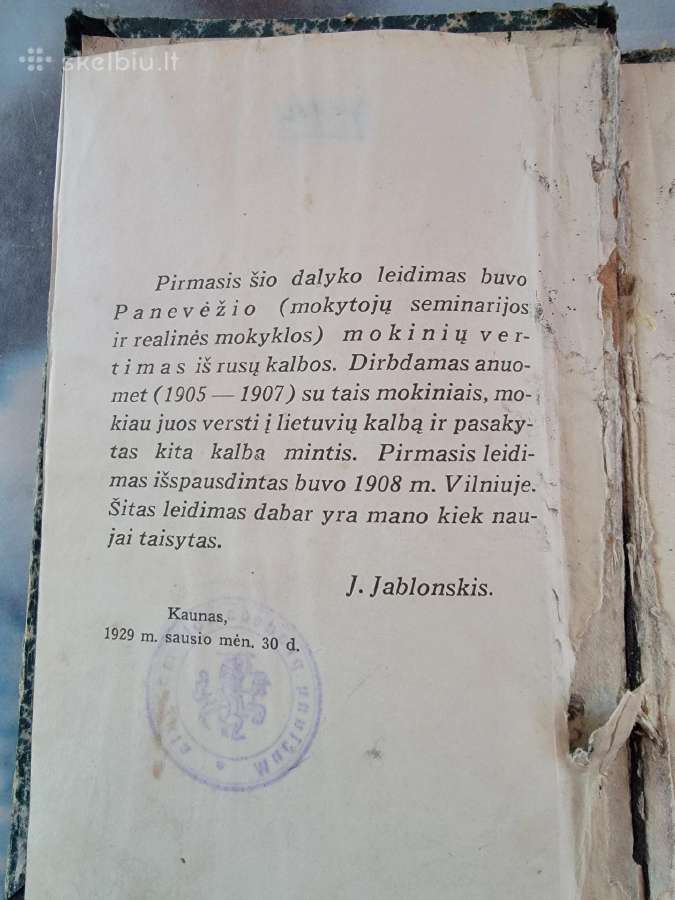 skelbiu.lt
Pirmasis šio dalyko leidimas buvo
Panevėžio (mokytojų seminarijos
ir realinės mokyklos) mokinių ver-
timas iš rusų kalbos. Dirbdamas anuo-
met (1905 — 1907) su tais mokiniais, mo-
kiau juos versti į lietuvių kalbą ir pasaky-
tas kita kalba mintis. Pirmasis leidi-
mas išspausdintas buvo 1908 m. Vilniuje.
Šitas leidimas dabar yra mano kiek nau-
jai taisytas.
J. Jablonskis.
Kaunas,
1929 m. sausio mėn. 30 d.